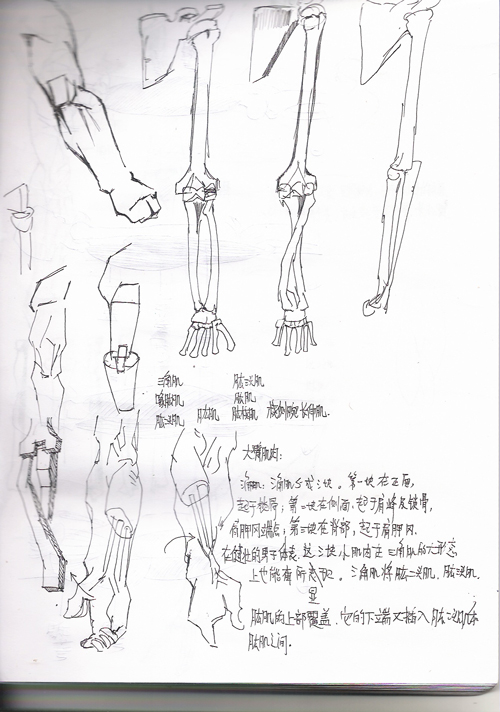 三角肌 肱二头肌
喙肱肌 肱肌
肱三头肌 肱肌 肱桡肌 桡侧腕长伸肌.
大臂肌肉:
三角肌: 三角肌分成三块。第一块在正面,
起于锁骨; 第二块在侧面,起于肩峰及锁骨,
肩胛冈端点; 第三块在背部,起于肩胛冈.
在健壮的男子体表,这三块小肌肉在三角肌的大形态
上也能有所表现。三角肌将肱二头肌,肱三头肌.
显
肱肌的上部覆盖,它的下端又插入肱二头肌和
肱肌之间.